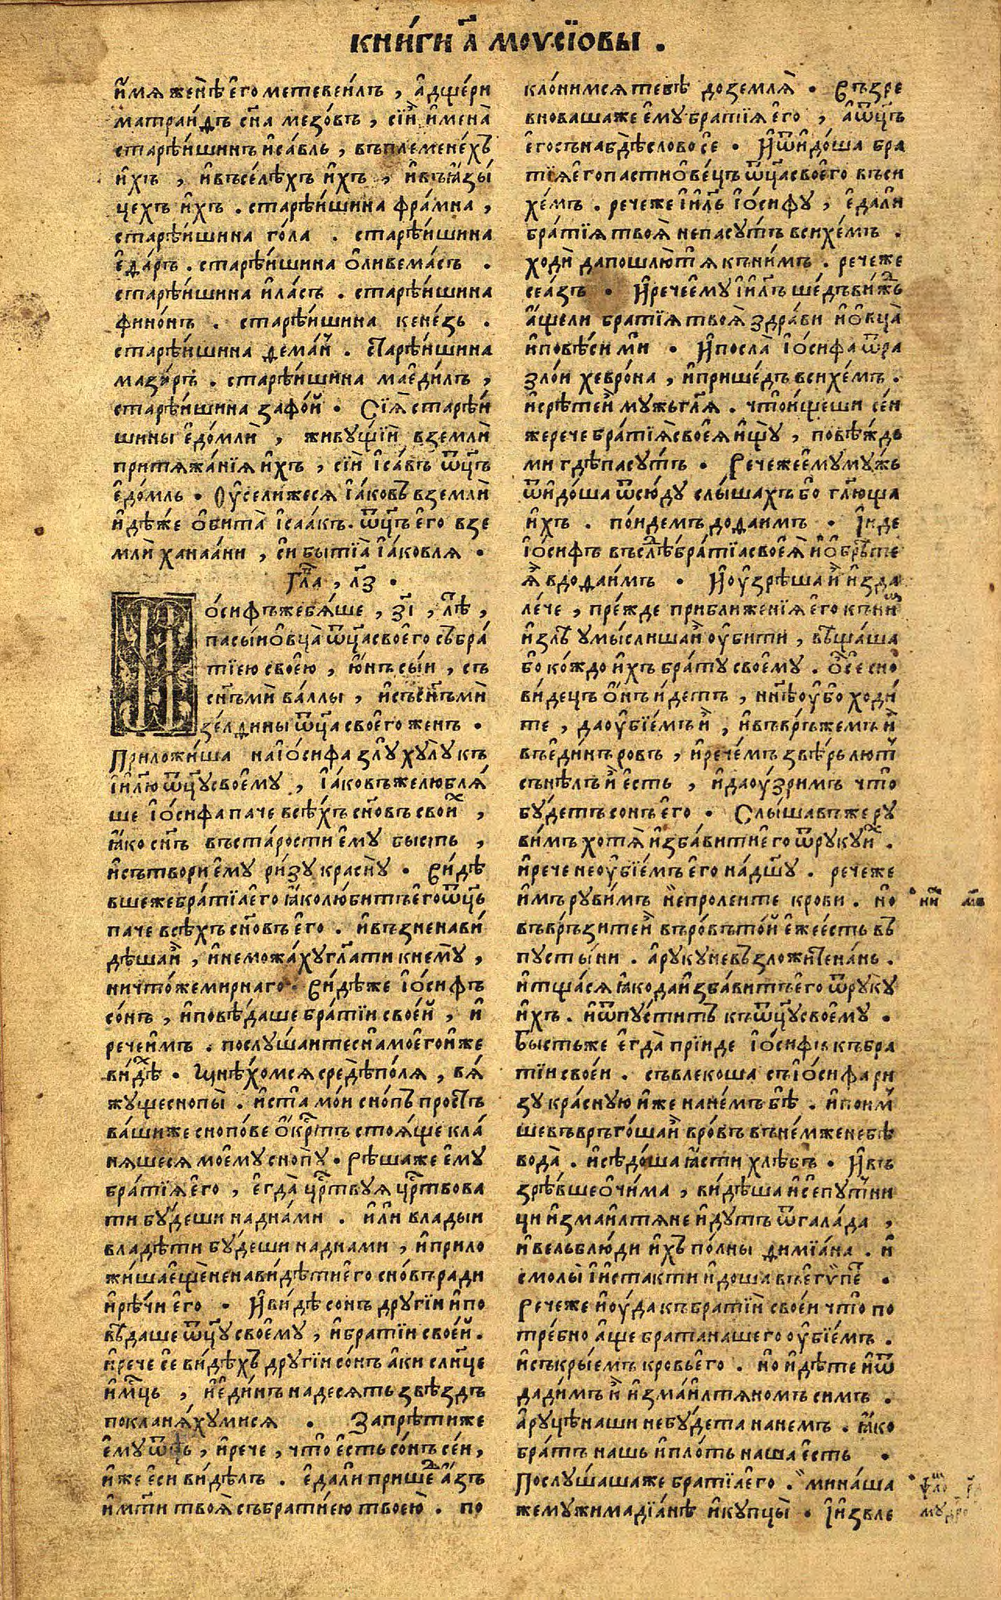 КНИ́ГИ а҃ МОѴСЇОВЫ .
и҆́мѧ женѣ̀ є҆го метевеи́лъ , а҆ дщери
матраи́дъ сн҃а мезо́въ , сїи́ и҆мена̀
старѣ́ишинъ и҆са́вль , въплеменѐхъ
и҆́хъ , и҆въсе́лѣхъ и҆́хъ , и҆въꙗ҆зы́
цехъ и҆́хъ . старѣ́ишина фра́мна ,
старѣ́ишина го́ла . старѣ́ишина
є҆да́ръ . старѣ́ишина ѻ҆ливема́съ .
старѣ́ишина и҆ла́съ . старѣ́ишина
фино́нъ . старѣ́ишина кене́зь .
старѣ́ишина дема́й . старѣ́ишина
мазо́ръ . старѣ́ишина маєди́лъ ,
старѣ́ишина зафо́й . Сїѧ̀ старѣ́и
шины є҆до́мли̇ , живу́щїи вземлѝ
притѧжа́нїѧ и҆́хъ , сїи́ і҆са́въ ѿц҃ъ
є҆до́мль . Оу҆сели́жесѧ і҆а́ковъ вземлѝ
и҆дѣ́же ѻ҆бита̀ і҆саа́къ . ѿц҃ъ є҆го взе
млѝ ханаа́ни , сѝ бытїа̀ і҆а́ковлѧ .
Гла҃ , л҃з .
І҆ѻ́сифъжебѧ́ше , з҃і , лѣ҃ ,
пасы́и ѻ҆вца̀ ѿц҃а своего събра́
тїею своє́ю , ю҆́нъ сы́и , съ
сн҃ъми́ ва́ллы , и҆съсн҃ъми́
зе́лдины ѿц҃а своє́го женъ .
Приложи́ша на і҆ѻ́сифа злу̀ хулу̀ къ
і҆и҃лю ѿц҃у своему̀ , і҆а́ковъжелюблѧ́
ше і҆ѻ́сифа паче всѣ́хъ сн҃овъ свои́х ,
ꙗ҆́ко сн҃ъ въстарости є҆му бысть ,
и҆сътвори є҆му ри́зу красну̀ . Ви́дѣ
вшежебратїа̀ є҆го ꙗ҆́ко люби́тъ є҆го ѿц҃ъ
паче всѣ́хъ сн҃овъ є҆го . и҆възненави́
дѣшаи҆̀ , и҆немо́жахугл҃ати кнему̀ ,
ничто́же мирнаго . Ви́дѣже і҆ѻ́сифъ
со́нъ , и҆повѣ́даше бра́тїи своє́й , и҆
речеи҆́мъ . послу́шаите сна̀ моего̀ и҆́же
ви́дѣх . Мнѣ́хомсѧ средѣ̀ по́лѧ , вѧ́
жуще снопы̀ . и҆ста̀ мо́и сно́пъ про́стъ
ва́шиже сно́пове ѻ҆́крⷭ҇тъ стоѧ́ще кла́
нѧшесѧ мое́му снопу̀ . Рѣ́шаже є҆му
бра́тїѧ є҆го , є҆гда̀ црⷭ҇твуѧ црⷭ҇твова
ти бу́деши на́дна́ми . и҆лѝ влады́и
владѣ́ти бу́деши на́днами , и҆прило
жи́ша є҆щѐ ненави́дѣти є҆го сно́въ ра́ди
и҆рѣ́чи є҆го . И҆ви́дѣ со́нъ дру́гїи и҆по
вѣ́даше ѿц҃у своему̀ , и҆бра́тїи своє́й .
и҆рече се̏ ви́дѣхъ дру́гїи со́нъ а҆ки сл҃нце
и҆мц҃ь , и҆є҆ди́нъ на́десѧть звѣ́здъ
покланѧ́хумисѧ . Запрѣти́же
є҆му ѿц҃ь , и҆рече , что̀ є҆́сть со́нъ сеи ,
и҆́же є҆си ви́дѣлъ . є҆да́ли прише́д а҆́зъ
и҆ мт҃и твоѧ̀ съ братиєю твоею . по
клони́мсѧ тебѣ̀ до землѧ̀ . Възре
вноваша же є҆му братїѧ є҆го , а҆ѿц҃ъ
є҆го съна́бдѣ сло́во се . И҆ѿидо́ша бра
тїѧ є҆го пасти ѻ҆ве́цъ ѿц҃а своє́го въси
хе́мъ . речеже і҆и҃ль і҆ѻ́сифу , є҆дали
бра́тїѧ твоѧ̀ непасу́тъ всихе́мъ .
ходѝ да по́шлют ѧ къ ни́мъ . речеже
сеа́зъ . И҆рече є҆му і҆и҃лъ ше́дъ ви́жъ
а҆́щели бра́тїѧ твоѧ̀ здра́ви и҆ѻ҆вца̀
и҆повѣ́си мѝ . И҆посла̀ і҆ѻ́сифа ѿра
зло́и хевро́на , и҆прише́дъ всихе́мъ .
и҆срѣ́теи҆ мужь гл҃ѧ . что̀ и҆́щеши се́и
же рече братїѧ своєѧ̀ и҆щу̀ , повѣ́ждь
ми гдѣ̀ пасу́тъ . Рече же є҆му му́жъ
ѿидо́ша ѿсю́ду слы́шахъ бо гл҃юща
и҆́хъ . по́идемъ до даи́мъ . І҆и́де
і҆ѻ́сифъ въслѣ́д братїа своєѧ̀ и҆ѻ҆брѣ́те
ѧ̀ в до даи́мъ . И҆оу҆зрѣ́ша и҆̀ и҆зда
ле́че , пре́жде приближе́нїѧ є҆го къ ни́мъ
и҆злѣ̀ умы́слиша и҆̀ оу҆би́ти , вѣ́щаша
бо ко́ждо и҆́хъ бра́ту своєму . ѻ҆се сно
ви́децъ ѻ҆́нъ и́детъ , нн҃ѣ оу҆́бо ходи́
те , да оу҆бїе́мъ и҆̀ , и҆въвръ́жемъ и҆̀
въє҆ди́нъ ро́въ , и҆рече́мъ звѣ́рь лют
сънѣ́лъ и҆̀ є́сть , и҆даоу҆́зримъ что̀
бу́детъ со́нъ є҆го . Слы́шавъже ру
ви́мъ хотѧ̀ и҆зба́вити є҆го ѿ руку и҆х .
и҆рече неоу҆бїе́мъ є҆го на́дш҃у . речеже
и҆́мъ руви́мъ непроле́ите крови . но
въвръ́зитеи҆̀ въро́въто́и є҆́жеє҆сть въ
пусты́ни . а҆руку невъзложи́те на́нь .
и҆тща́сѧ ꙗ҆́ко да и҆зба́витъ є҆го ѿ руку̀
и҆́хъ . и҆ѿпу́ститъ къ ѿц҃у своєму .
Бысть же є҆гда̀ прїиде і҆ѻ́сифъ къ бра
тїи свое́и . съвлеко́ша съ і҆ѻ́сифа ри
зу кра́сную и҆́же на не́мъ бѣ̀ . и҆пои́м
ше въвръ́гоша и҆̀ вро́въ въ не́мже не бѣ̀
вода̀ . и҆сѣдо́ша ꙗ҆́сти хлѣ́бъ . И҆въ
зрѣ́вше ѻ҆чи́ма , ви́дѣша и҆ се пу́тни
ци и҆змаи́лтѧне и҆ду́тъ ѿ гала́да ,
и҆вельблю́ди и҆́хъ по́лны димїа́на . и҆
смолы̀ і҆и҆ста́кти и҆до́ша въ є҆гѵ́пет .
Рече же и҆о́уда къ бра́тїи свое́и что̀ по
тре́бно а҆́ще бра́та на́шего оу҆бїе́мъ .
и҆съкры́емъ кровь є҆го . но и҆дѣ́те и҆ѿ
дади́мъ и҆̀ и҆змаи́лтѧномъ си́мъ .
а҆руцѣ̀ на́ши небу́дета на не́мъ . ꙗ҆́ко
бра́тъ нашь и҆пло́ть на́ша є҆́сть .
Послу́шашаже бра́тїа є҆го . мина́ша
же му́жи мадїа́нѣ и҆купцы̀ . І҆и҆звле